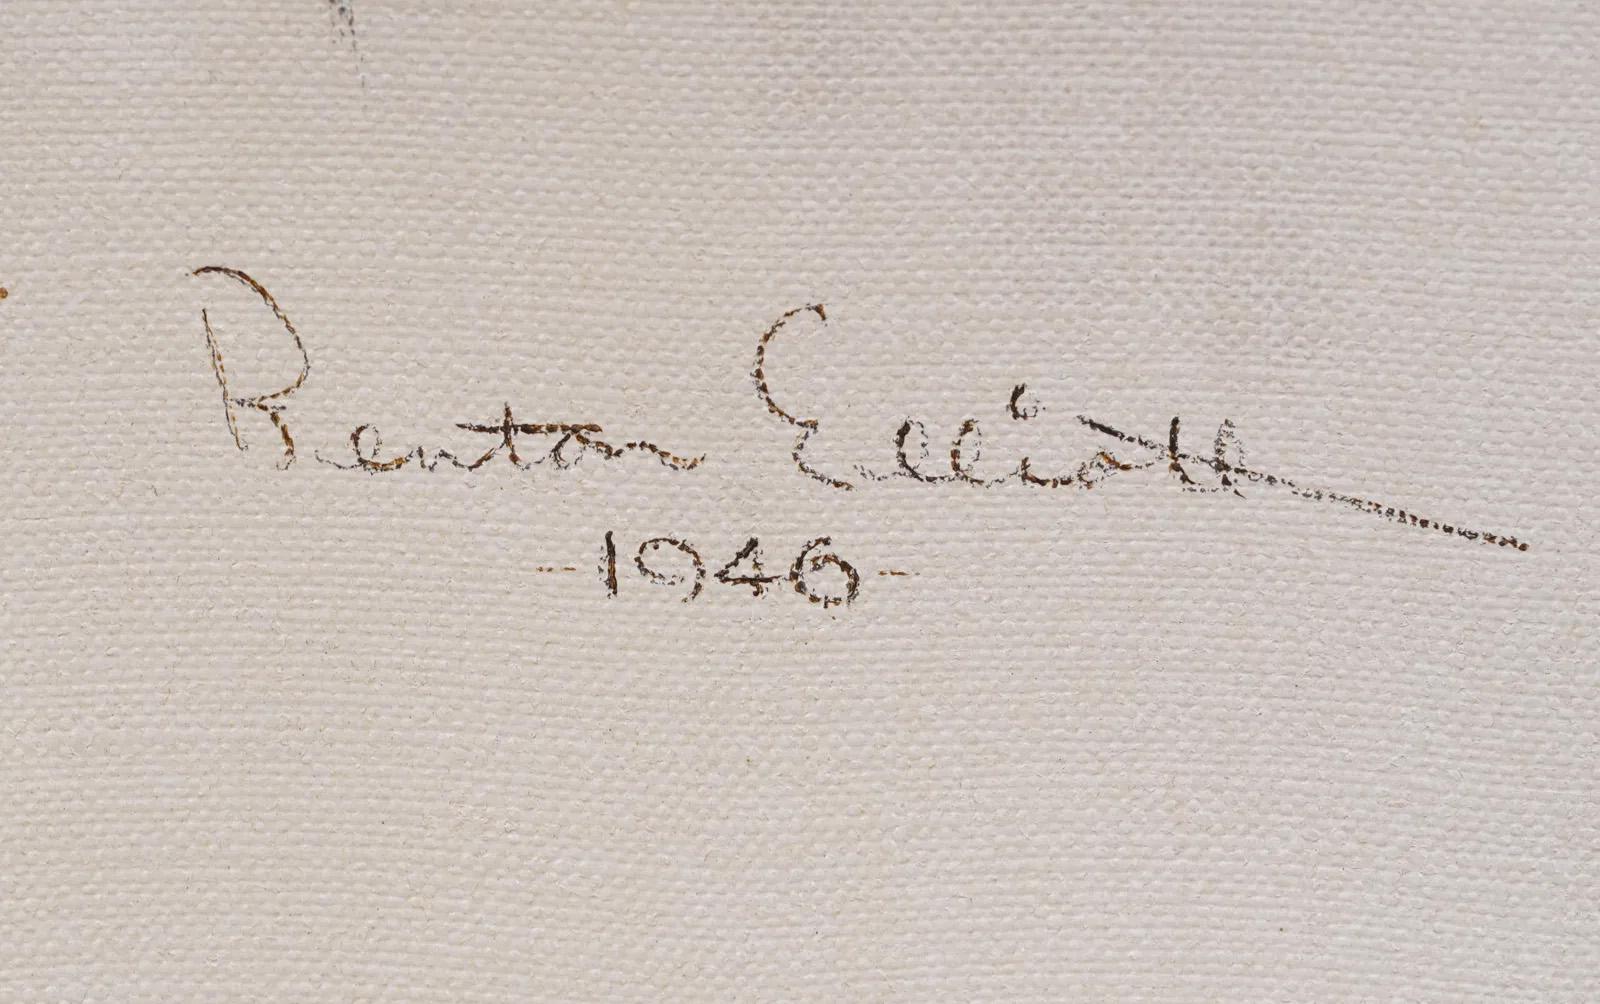 Renton Elliott
-1946-